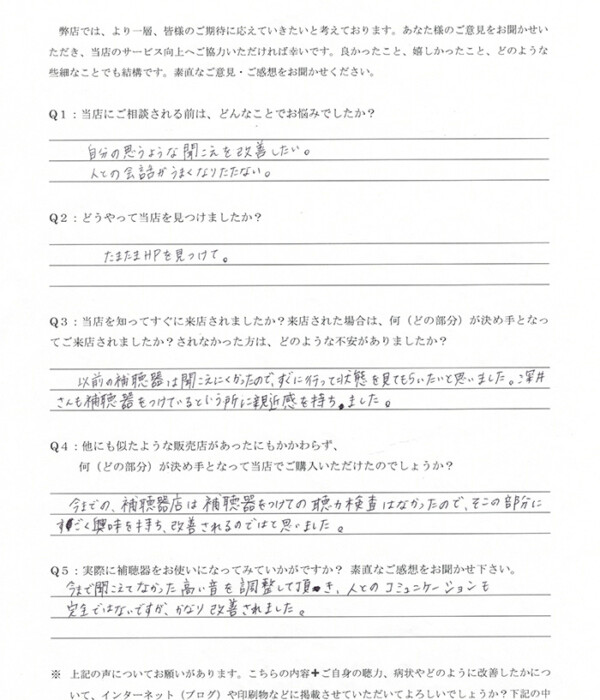 弊店では、より一層、皆様のご期待に応えていきたいと考えております。あなた様のご意見をお聞かせい
ただき、当店のサービス向上へご協力いただければ幸いです。良かったこと、嬉しかったこと、どのような
些細なことでも結構です。素直なご意見・ご感想をお聞かせください。
Q1：当店にご相談される前は、どんなことでお悩みでしたか？
自分の思うような聞こえを改善したい。
人との会話がうまくなりたたない。
Q2：どうやって当店を見つけましたか？
たまたまHPを見つけて。
Q3：当店を知ってすぐに来店されましたか？来店された場合は、何（どの部分）が決め手となっ
てご来店されましたか？されなかった方は、どのような不安がありましたか？
以前の補聴器は聞こえにくかったので、すぐに行って状態を見てもらいたいと思いました。深井
さんも補聴器をつけているという所に親近感を持ちました。
Q4：他にも似たような販売店があったにもかかわらず、
何（どの部分）が決め手となって当店でご購入いただけたのでしょうか？
今までの、補聴器店は補聴器をつけての聴力検査はなかったので、そこの部分に
すごく興味を持ち、改善されるのではと思いました。
Q5：実際に補聴器をお使いになってみていかがですか？ 素直なご感想をお聞かせ下さい。
今まで聞こえてなかった高い音を調整して頂き、人とのコミュニケーションも
完全ではないですが、かなり改善されました。
※ 上記の声についてお願いがあります。こちらの内容＋ご自身の聴力、病状やどのように改善したかにつ
いて、インターネット（ブログ）や印刷物などに掲載させていただいてよろしいでしょうか？下記の中